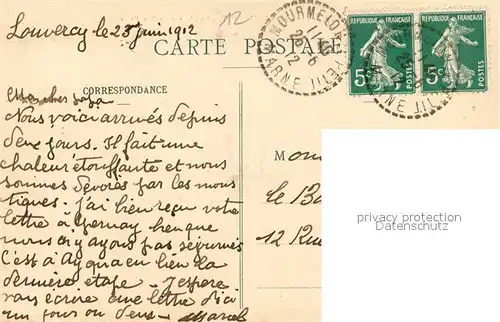 Louvercy le 25 juin 1912
12
CARTE POSTALE
MOURMELON
MARNE
RÉPUBLIQUE FRANÇAISE
5c POSTES
RÉPUBLIQUE FRANÇAISE
5c POSTES
CORRESPONDANCE
Mon cher
Nous voici arrivés depuis
deux jours. Il fait une
chaleur étouffante et nous
sommes dévorés par les mous
tiques. J'ai bien reçu votre
lettre à Epernay bien que
nous n'y ayons pas séjournés
C'est à Ay qu'a eu lieu la
dernière étape. J'espère
vous écrire une lettre d'ici
un jour ou deux. Marcel
Mon
le Ba
12 Rue
privacy protection
Datenschutz